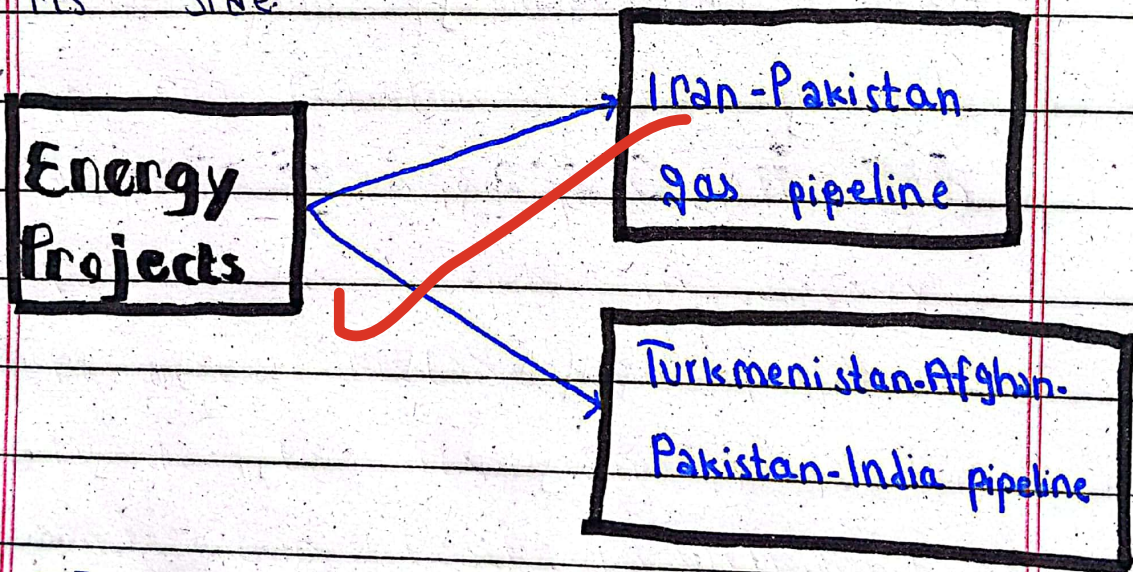 Energy
Projects
Iran-Pakistan
gas pipeline
Turkmenistan-Afghan-
Pakistan-India pipeline